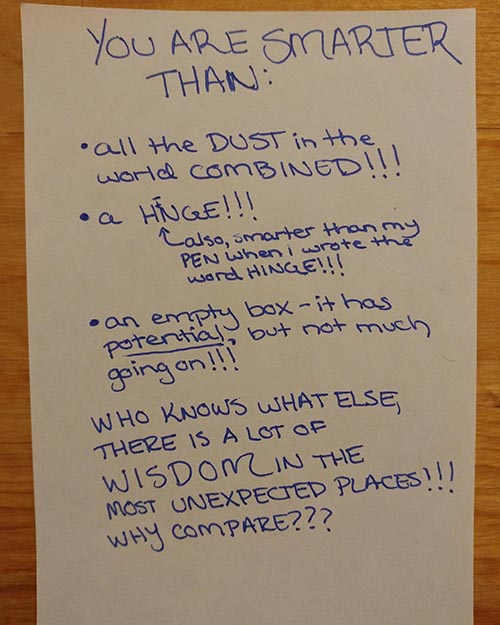 YOU ARE SMARTER
THAN:
• all the DUST in the
world COMBINED!!!
• a HINGE!!!
also, smarter than my
PEN when i wrote the
word HINGE!!!
• an empty box - it has
potential, but not much
going on!!!
WHO KNOWS WHAT ELSE,
THERE IS A LOT OF
WISDOM IN THE
MOST UNEXPECTED PLACES!!!
WHY COMPARE???